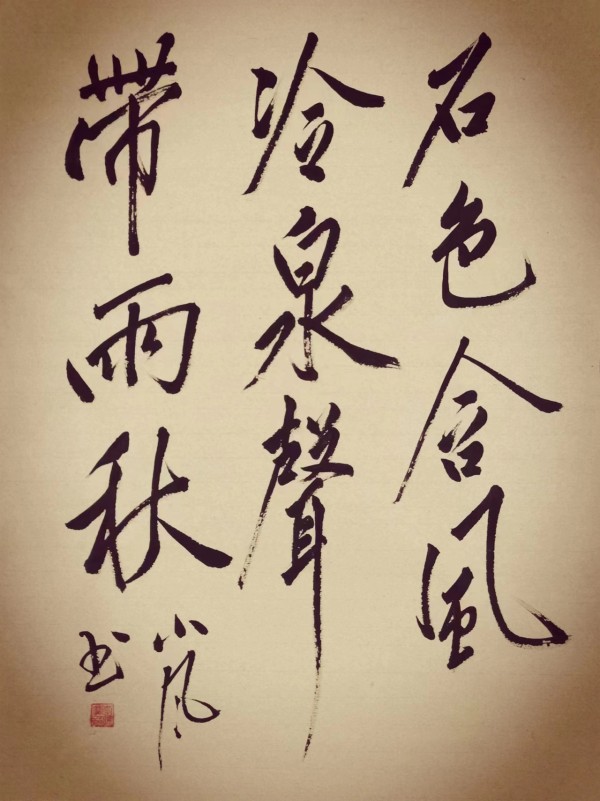 石色含風
冷泉聲
帶雨秋
小嵐
书